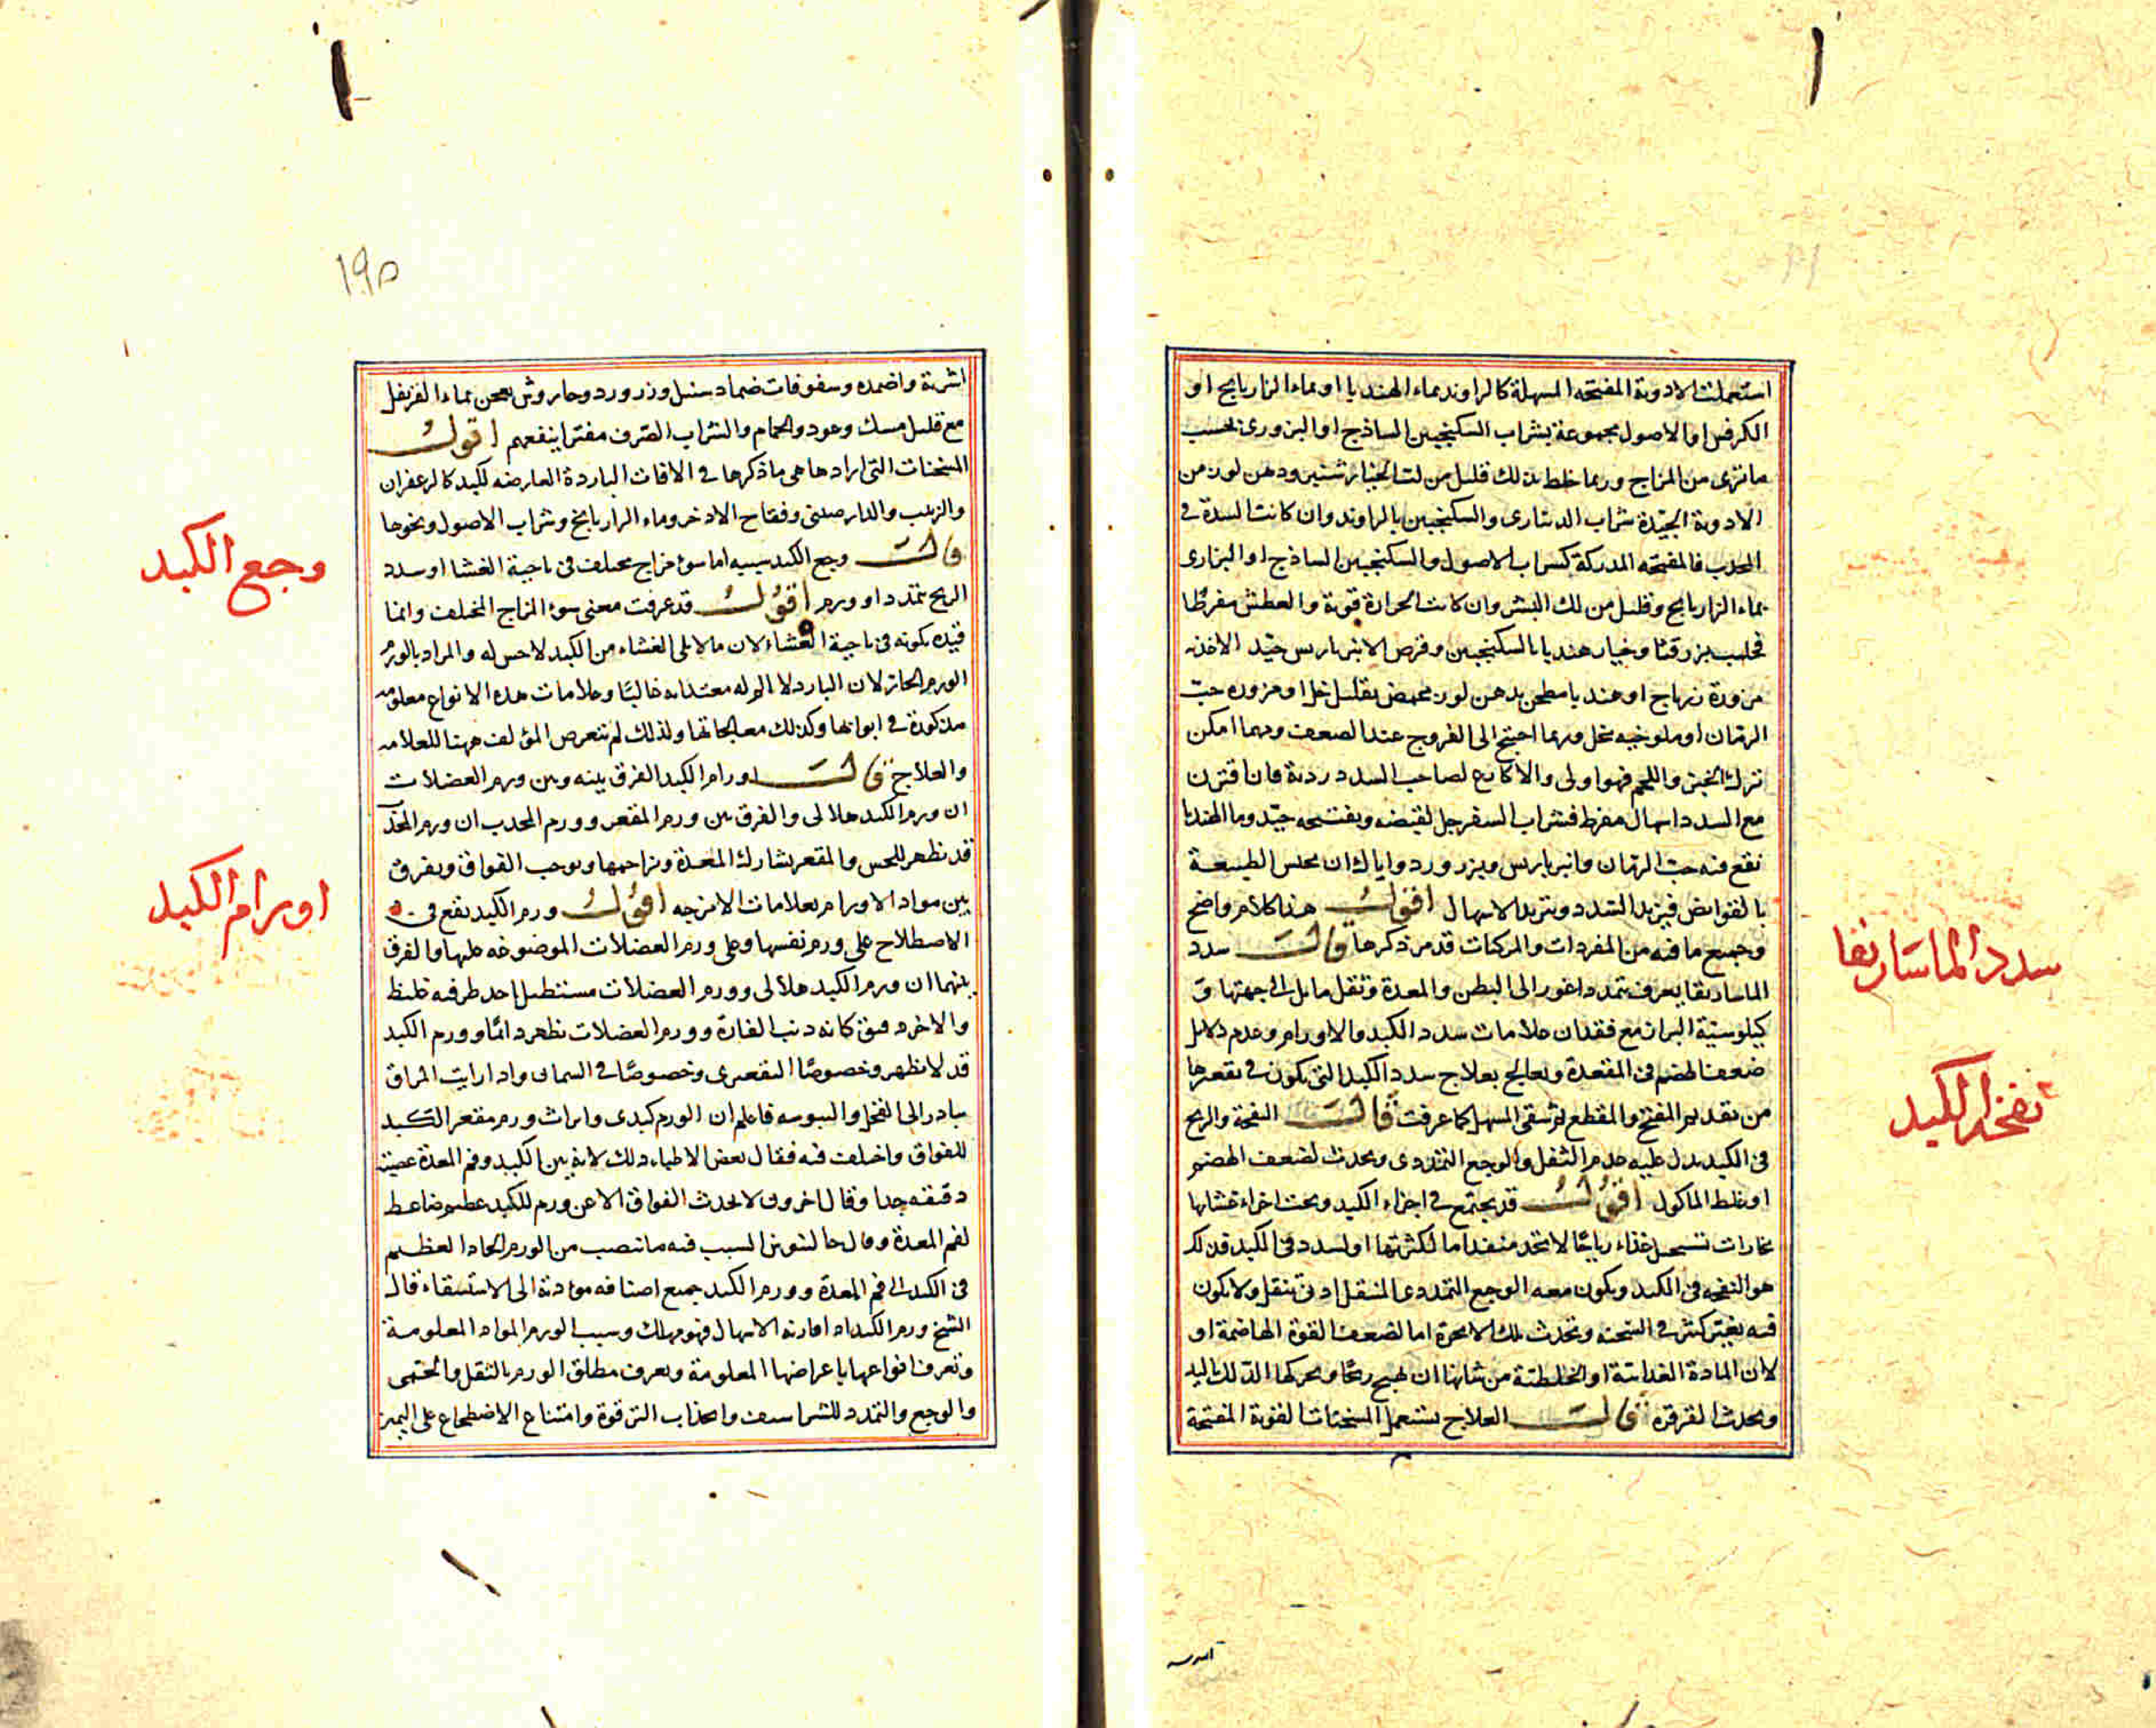 استعملت الادوية المفتحه المسهلة كالراوند بماء الهندبا او بماء الرازيانج او
الكرفس او الاصول مجموعة بشراب السكنجبين الساذج او البزورى بحسب
ما ترى من المزاج وربما خلط بذلك قليل من لب الخيار شنبر ودهن لوز ومن
الادوية الجيدة شراب الدينارى والسكنجبين بالراوند وان كانت السدة فى
المحدب فالمفتحه المدركة كشراب الاصول والسكنجبين الساذج او البزارى
بماء الرازيانج وقليل من لك البشر وان كانت الحرارة قوية والعطش مفرطا
فحليب بزر قثا وخيار هندبا بالسكنجبين وقرص الانبرباريس جيد الاغذيه
مزورة زيرباج او هندبا مطجن بدهن لوز محمض بقليل خل او مزوره حب
الرمان او ملوخيه بخل وربما احتيج الى الفروج عند الضعف ومهما امكن
ترك الخبز واللحم فهو اولى والاكارع لصاحب السدد ردية فان اقترن
مع السدد اسهال مفرط فشراب السفرجل لقبضه وبفتيحه جيد وما الهندبا
نقع فيه حب الرمان وانبرباريس وبزر ورد واياك ان تحبس الطبيعة
بالقوابض فيزيد السدد ويزيد الاسهال اقول هذا كلام واضح
وجميع ما فيه من المفردات والمركبات قد مر ذكرها قالت سدد
الماساريقا يعرف بتمدد اغور الى البطن والمعدة وثقل مايل الى جهتها و
كيلوسية البراز مع فقدان علامات سدد الكبد والاورام وعدم دلايل
ضعف الهضم فى المعدة ويعالج بعلاج سدد الكبد التى يكون فى تقعيرها
من تقديم المفتح والمقطع ثم سقى المسهل كما عرفت قالت النفخة والريح
فى الكبد يدل عليه عدم الثقل والوجع التمددى ويحدث لضعف الهضم
او غلظ الماكول اقول قد يجتمع فى اجزاء الكبد وتحت اجزاء غشايها
بخارات تستحيل رياحا لا تجد منفذا اما لكثرتها او لسدد فى الكبد فذلك
هو النفخه فى الكبد ويكون معه الوجع التمددى المنتقل ولا يكون
فيه تغير كثير فى السحنة وتحدث تلك الابخرة اما لضعف القوة الهاضمة او
لان المادة الغذائية او الخلطية من شانها ان تهيج ريحا ويحركها الدلك باليد
ويحدث القرقره قالت العلاج يستعمل المسخنات القوية المفتحة
سدد الماساريقا
نفخة الكبد
١٩٥
اشربة واضمده وسفوفات ضماد سنبل وزر ورد وحاروش يعجن بماء القرنفل
مع قليل مسك وعود والحمام والشراب الصرف مفترا ينفعهم اقول
المسخنات التى ارادها هى ما ذكرها فى الافات الباردة العارضه للكبد كالزعفران
والزبيب والدارصينى وفقاح الاذخر وماء الرازيانج وشراب الاصول ونحوها
قالت وجع الكبد سببه اما سوء مزاج مختلف فى ناحية الغشا او سدد
الريح تمدد او ورم اقول قد عرفت معنى سوء المزاج المختلف وانما
قيده بكونه فى ناحية الغشاء لان ما لا يلى الغشاء من الكبد لا حس له والمراد بالورم
الورم الحار لان البارد لا الم له معتدا به غالبا وعلامات هذه الانواع معلومه
مذكورة فى ابوابها وكذلك معالجاتها ولذلك لم يتعرض المؤلف ههنا للعلامه
والعلاج قالت اورام الكبد الفرق بينه وبين ورم العضلات
ان ورم الكبد هلالى والفرق بين ورم المقعر وورم المحدب ان ورم المحدب
قد يظهر للحس والمقعر يشارك المعدة ويزاحمها ويوجب الفواق ويفرق
بين مواد الاورام بعلامات الامزجه اقول ورم الكبد يقع فى
الاصطلاح على ورم نفسها وعلى ورم العضلات الموضوعه عليها والفرق
بينهما ان ورم الكبد هلالى وورم العضلات مستطيل احد طرفيه غليظ
والاخر دقيق كانه ذنب الفارة وورم العضلات يظهر دائما وورم الكبد
قد لا يظهر وخصوصا التقعيرى وخصوصا فى السمان واذا رايت المراق
يبادر الى القحل واليبوسه فاعلم ان الورم كبدى وايراث ورم مقعر الكبد
للفواق واختلف فيه فقال بعض الاطباء ذلك لانه بين الكبد وفم المعدة عصبة
دقيقه جدا وقال اخرون لا يحدث الفواق الا عن ورم للكبد عظيم ضاغط
لفم المعدة وقال جالينوس السبب فيه ما ينصب من الورم الحاد العظيم
فى الكبد الى فم المعدة وورم الكبد جميع اصنافه مؤدية الى الاستسقاء قال
الشيخ ورم الكبد اذا قارنه الاسهال فهو مهلك وسبب الورم المواد المعلومة
وتعرف انواعها باعراضها المعلومة ويعرف مطلق الورم بالثقل والحمى
والوجع والتمدد للشراسيف وانجذاب الترقوة وامتناع الاضطجاع على اليمين
وجع الكبد
اورام الكبد